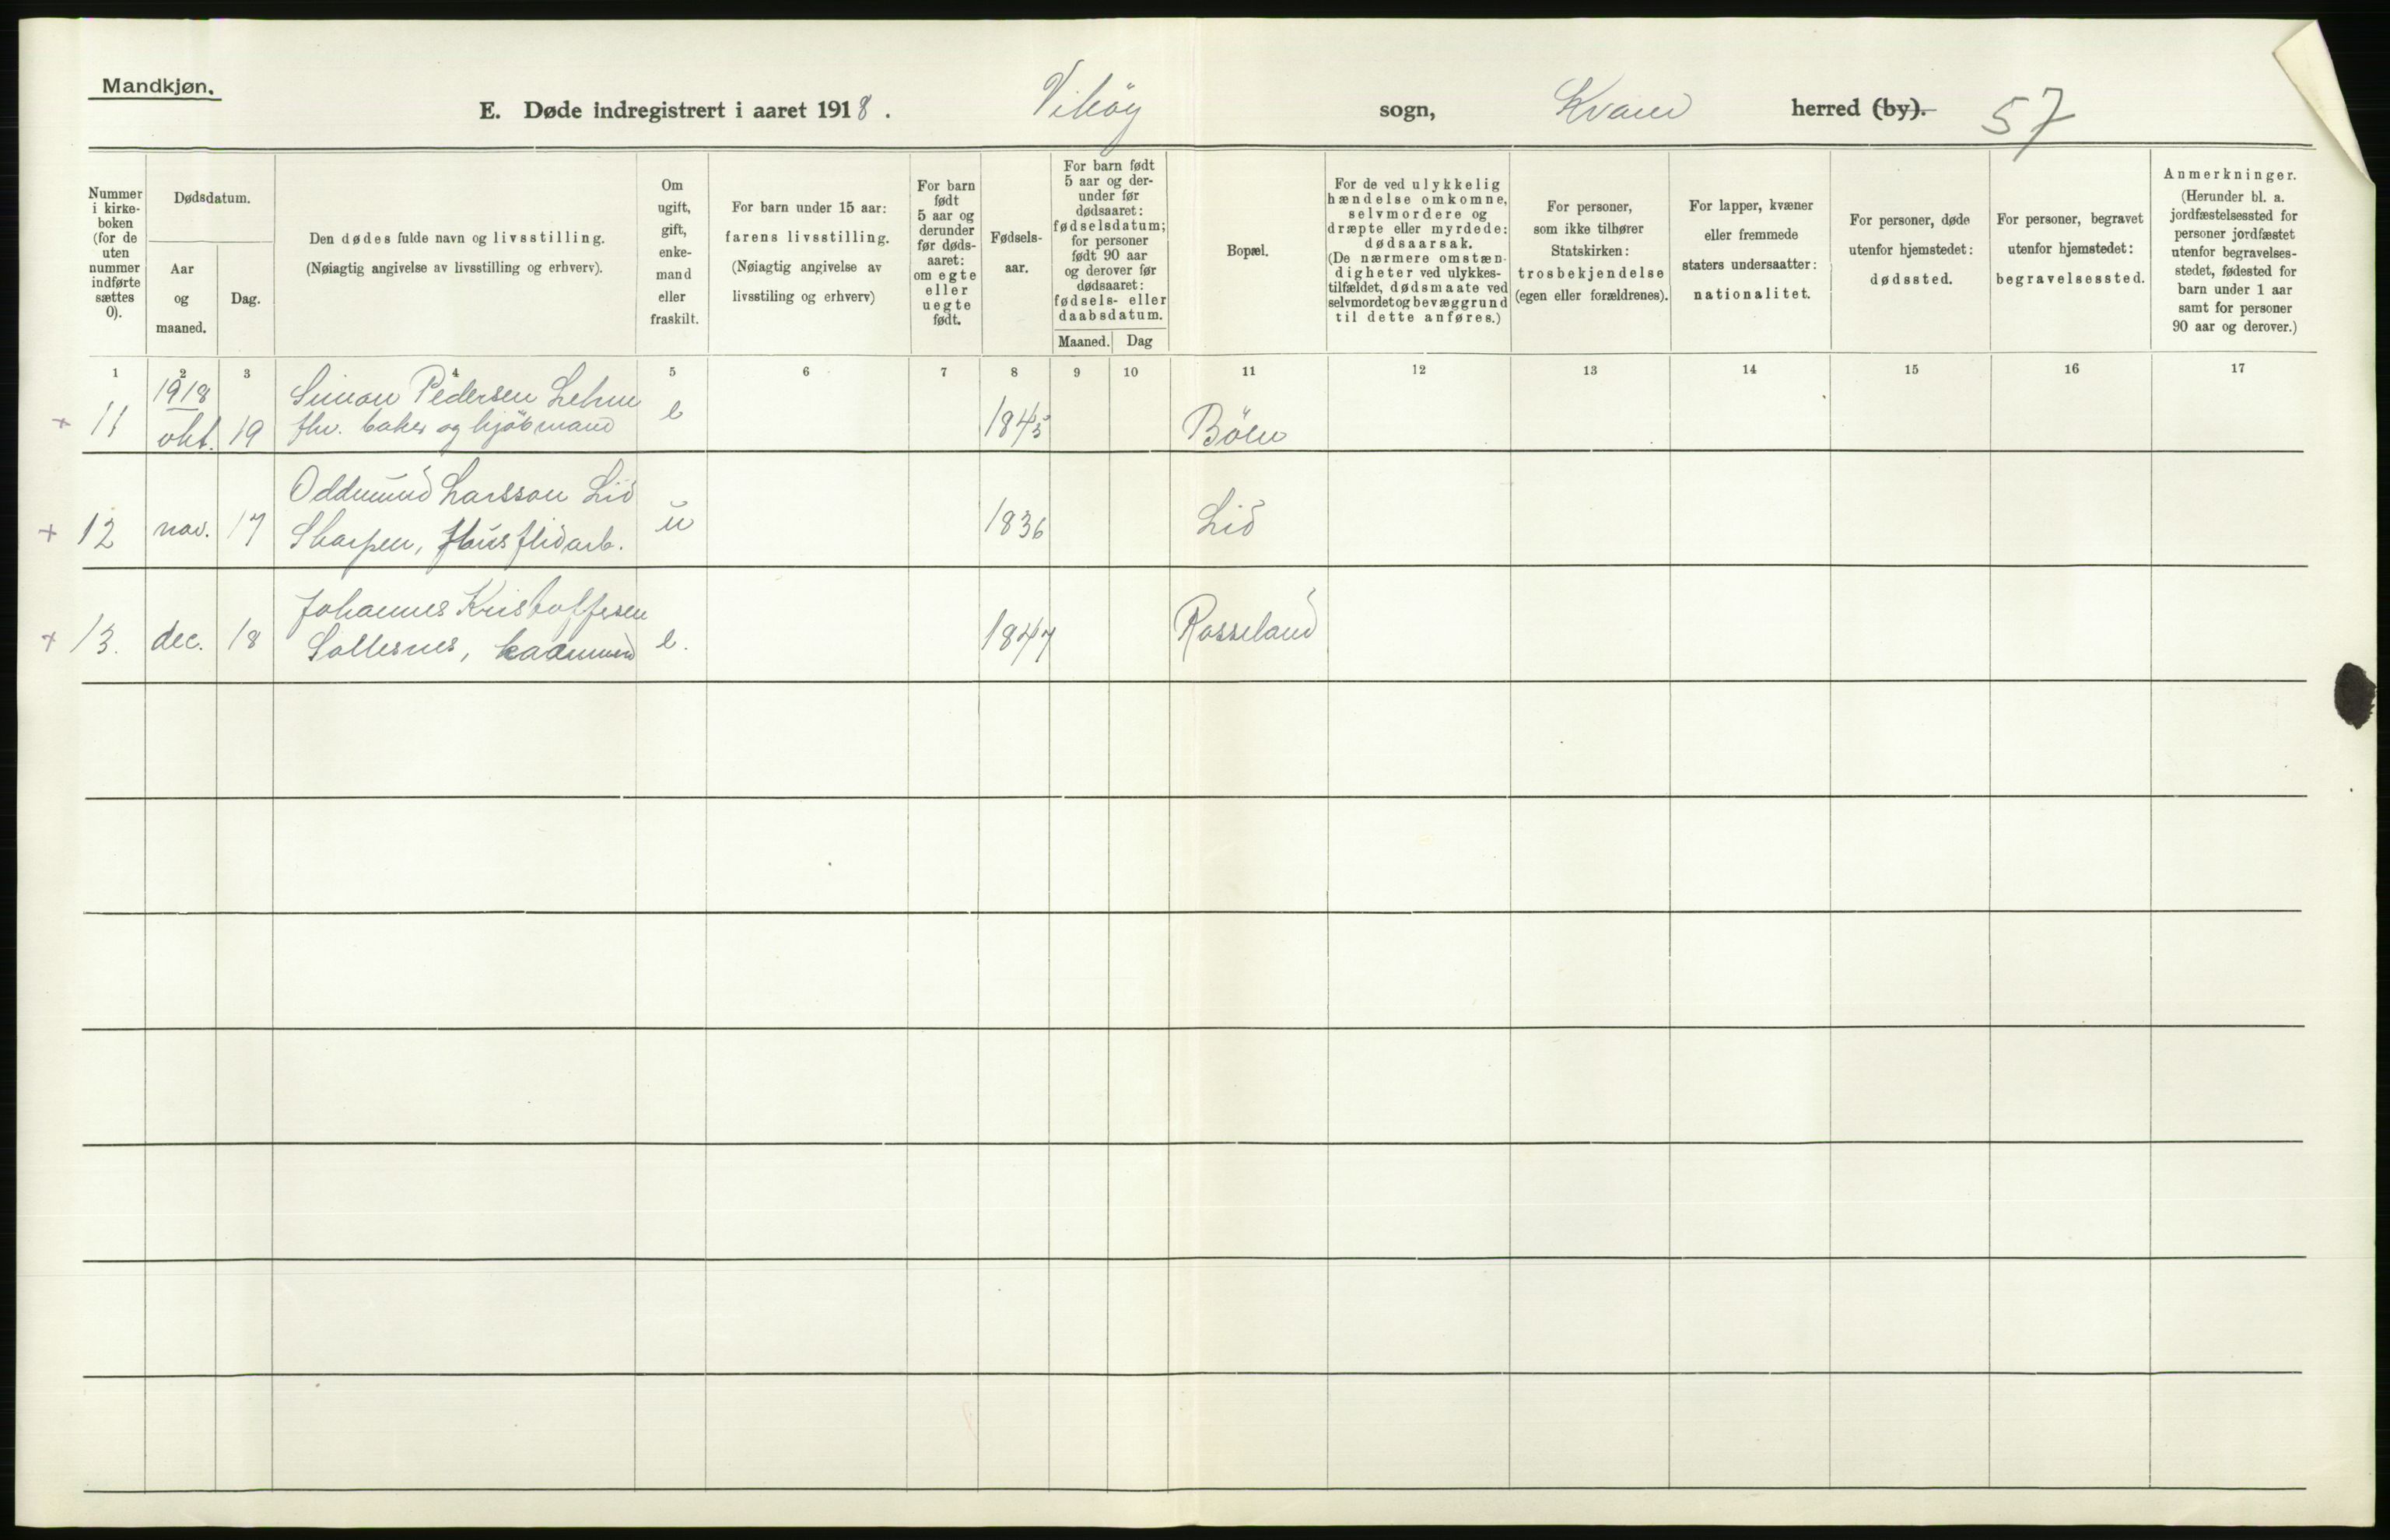 Mandkjøn.
E. Døde indregistrert i aaret 1918. Viköy sogn, Kvam herred (by). 57
Nummer i kirke-boken (for de uten nummer indførte sættes 0).
Dødsdatum.
Aar og maaned.
Dag.
Den dødes fulde navn og livsstilling.
(Nøiagtig angivelse av livsstilling og erhverv).
Om ugift, gift, enke-mand eller fraskilt.
For barn under 15 aar:
farens livsstilling.
(Nøiagtig angivelse av
livsstiling og erhverv)
For barn født 5 aar og derunder før døds-aaret: om egte eller uegte født.
Fødsels-aar.
For barn født 5 aar og der-under før dødsaaret: fødselsdatum; for personer født 90 aar og derover før dødsaaret: fødsels- eller daabsdatum.
Maaned. Dag
Bopæl.
For de ved ulykkelig hændelse omkomne, selvmordere og dræpte eller myrdede: dødsaarsak.
(De nærmere omstæn-digheter ved ulykkes-tilfældet, dødsmaate ved selvmordet og bevæggrund til dette anføres.)
For personer, som ikke tilhører Statskirken: trosbekjendelse (egen eller forældrenes).
For lapper, kvæner eller fremmede staters undersaatter: nationalitet.
For personer, døde utenfor hjemstedet: dødssted.
For personer, begravet utenfor hjemstedet: begravelsessted.
Anmerkninger.
(Herunder bl. a. jordfæstelsessted for personer jordfæstet utenfor begravelses-stedet, fødested for barn under 1 aar samt for personer 90 aar og derover.)
1 2 3 4 5 6 7 8 9 10 11 12 13 14 15 16 17
1918 Simon Pedersen
+ 11 okt. 19 fhv. baker og kjöbmand e 1845 Böen
Oddmund Larsson Lid
+ 12 nov. 17 Skarpen, Husflidarb. u 1836 Lid
Johannes Kristoffersen
+ 13. dec. 18 Sollesnes, kaarmand e. 1847 Rosseland